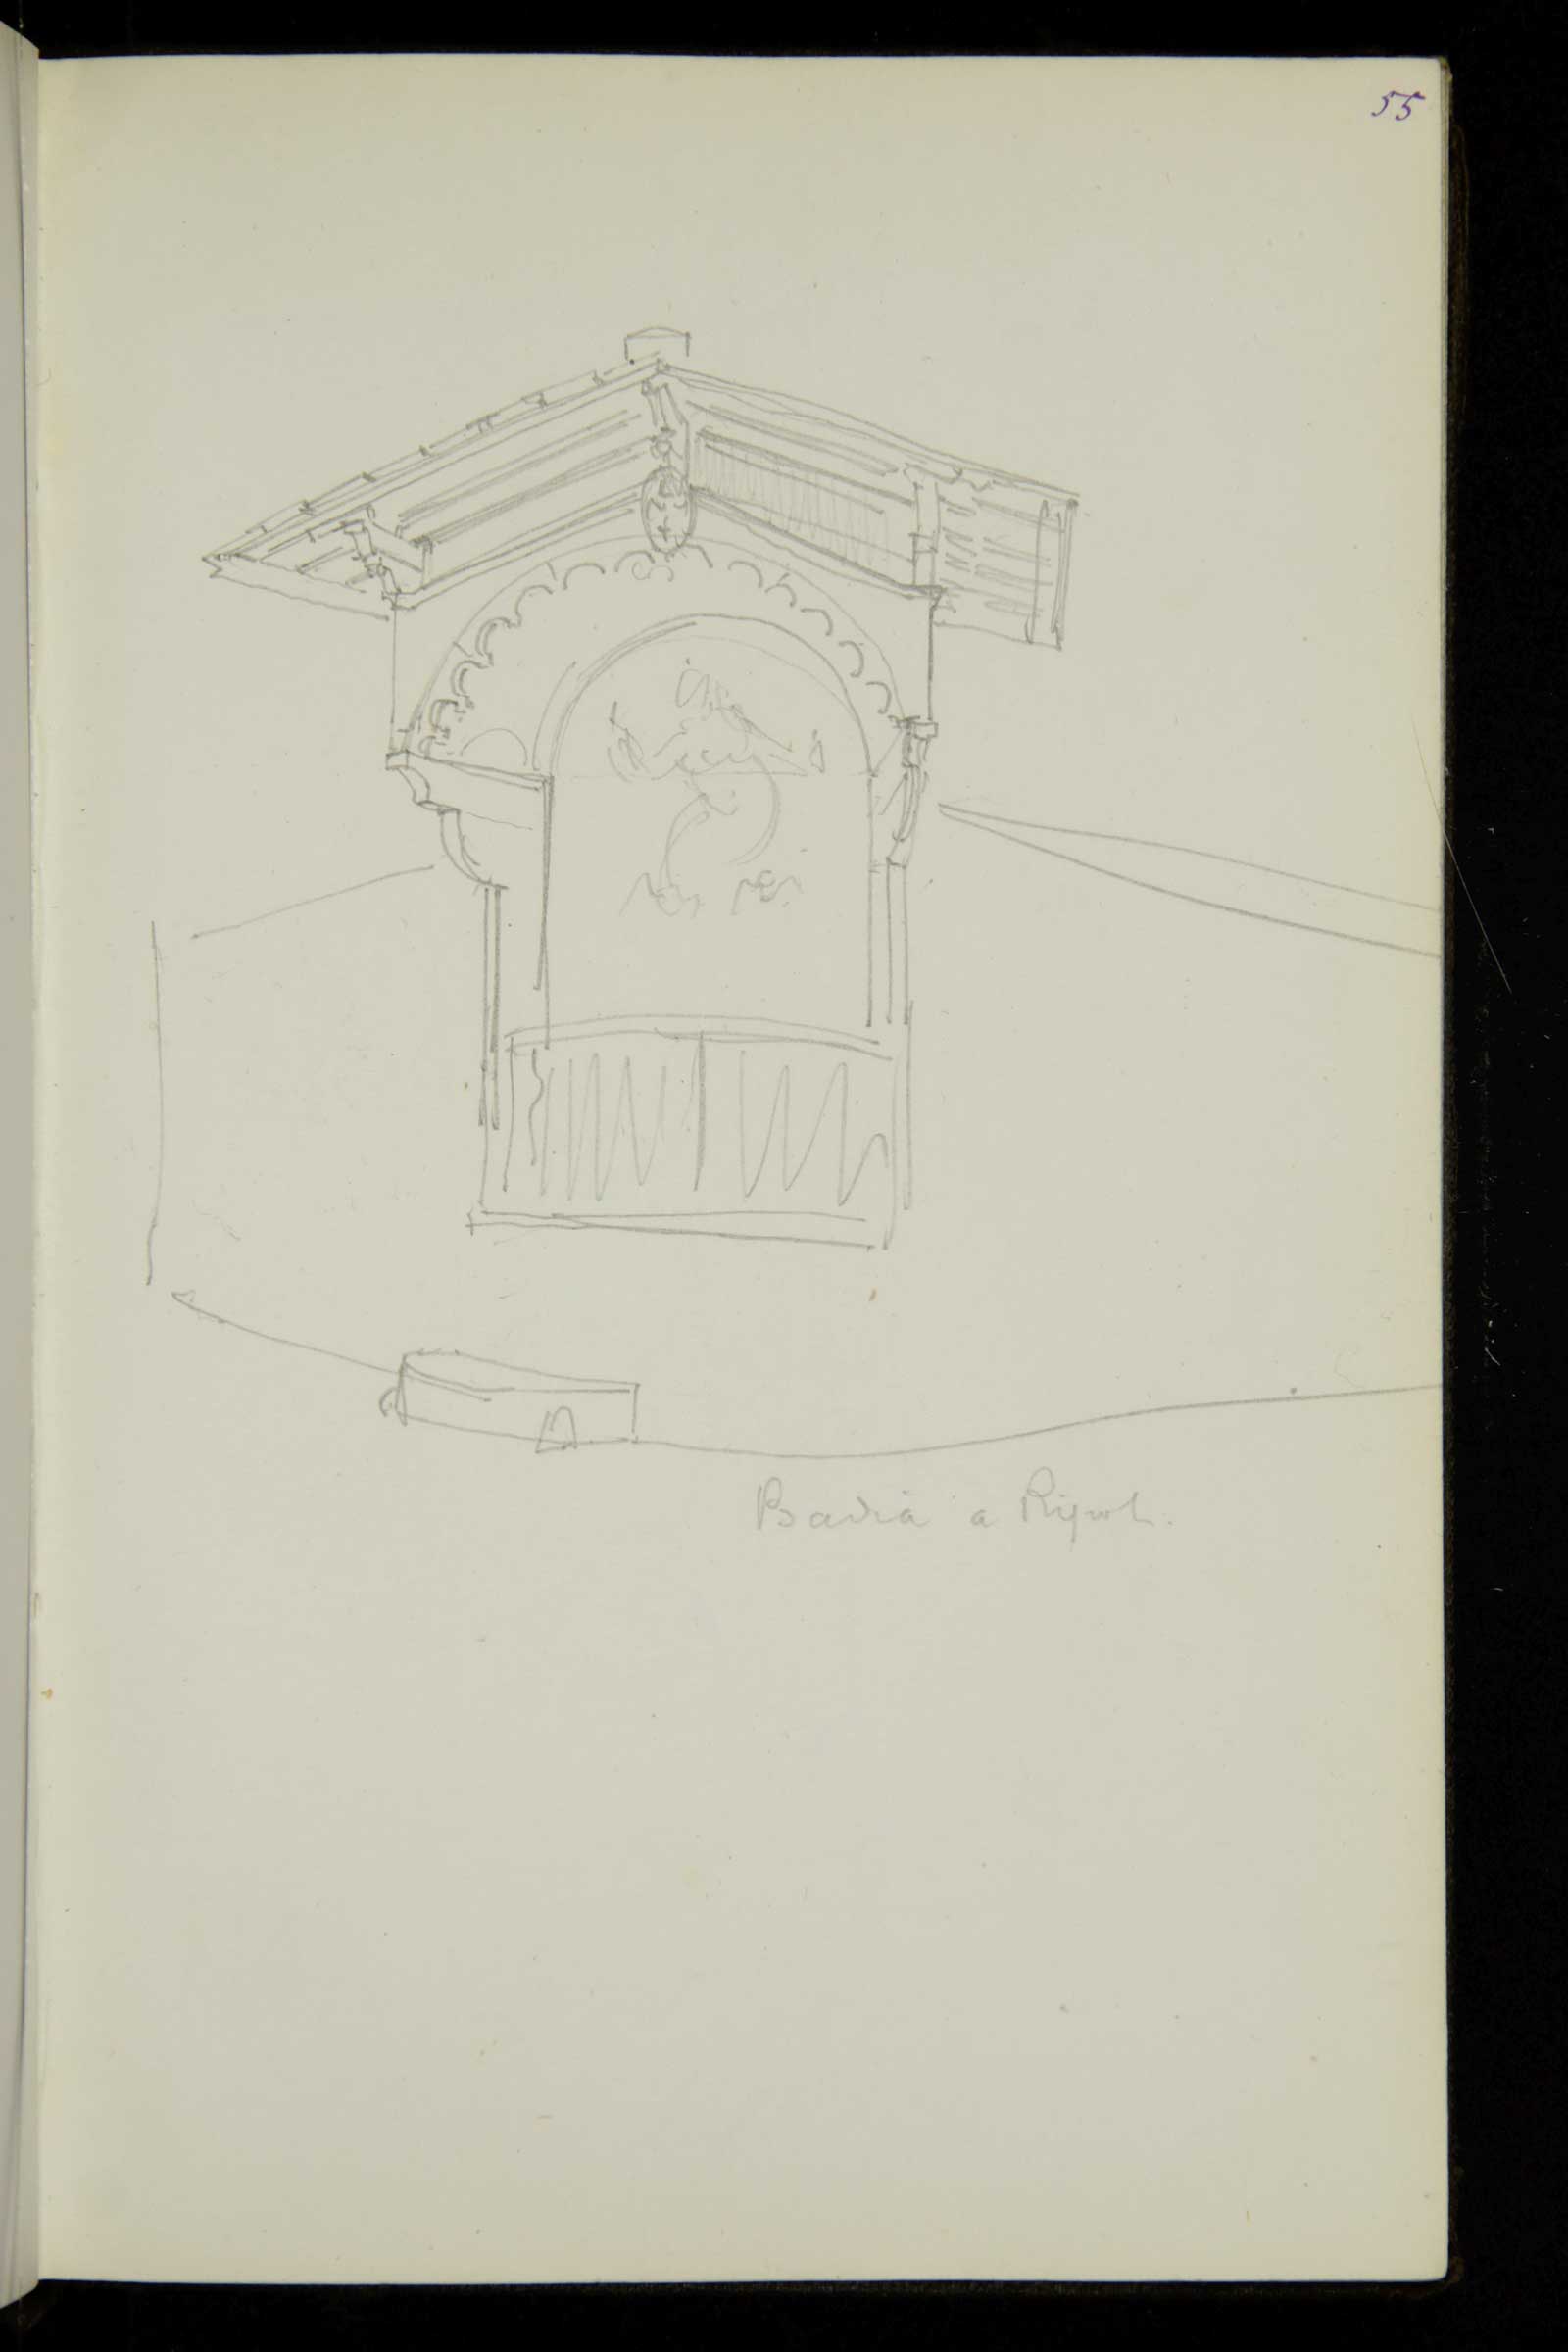 55
Badia a Ripoli.